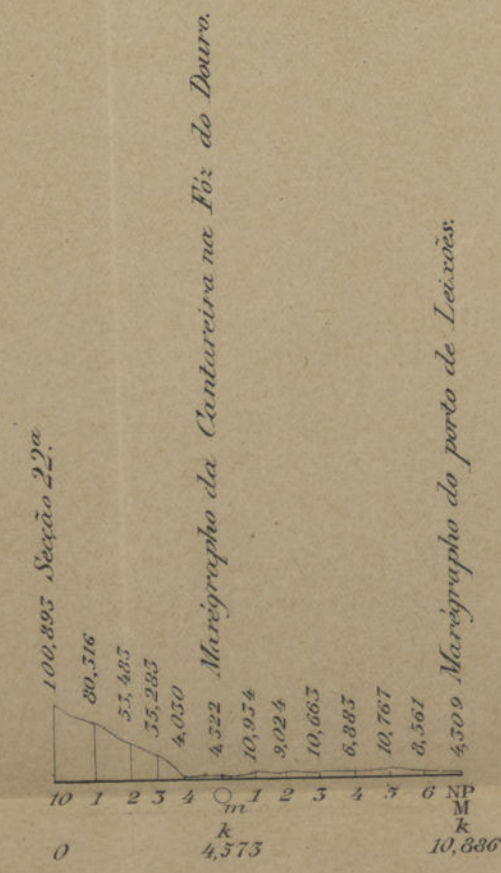 100,893 Secção 22ª
80,316
53,483
35,283
4,030
4,322 Marégrapho da Cantareira na Fóz do Douro.
10,934
9,024
10,663
6,883
10,767
8,561
4,309 Marégrapho do porto de Leixões.
10 1 2 3 4 O 1 2 3 4 5 6 NP
m M
k k
0 4,573 10,886